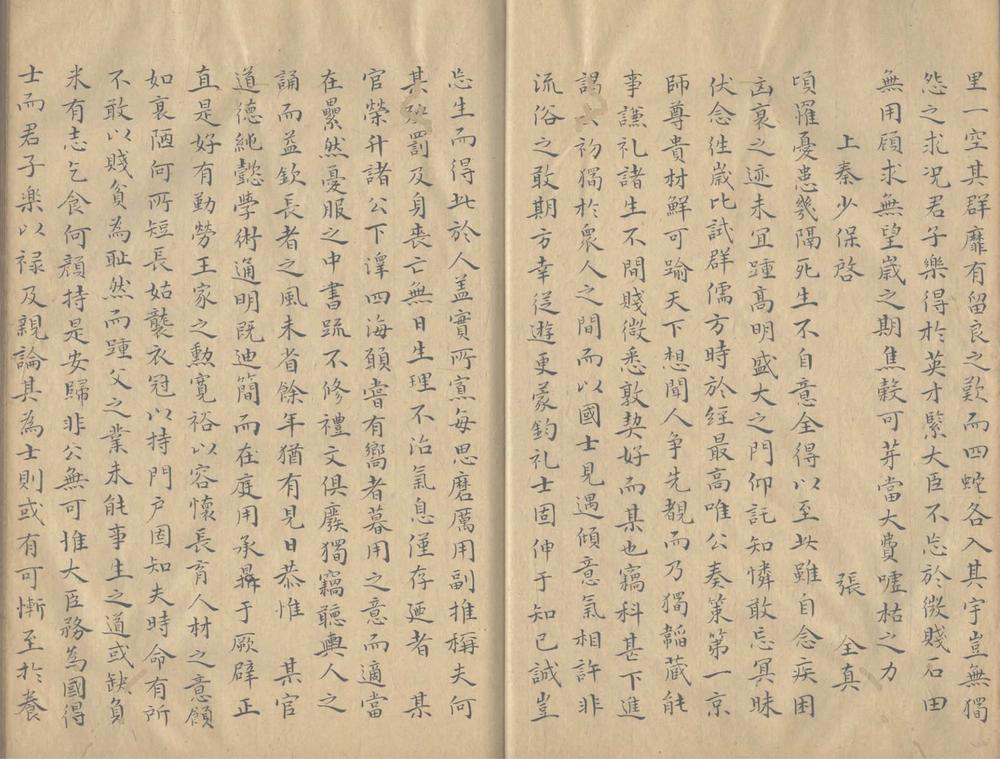 里一空其群靡有留良之歎而四蛇各入其宇豈無獨
怨之求況君子樂得於英才緊大臣不忘於微賤石田
無用顧求無望歲之期焦穀可芽當大費噓枯之力
上秦少保啓 張 全真
頃罹憂恚幾隔死生不自意全得以至此雖自念疾困
凶衰之迹未宜踵高明盛大之門仰託知憐敢忘冥昧
伏念徃歲比試群儒方時於經最高唯公奏策第一京
師尊貴材鮮可踰天下想聞人爭先覩而乃獨韜藏能
事謙礼諸生不間賤微悉敦契好而某也竊科甚下進
謁 初獨於衆人之間而以國士見遇傾意氣相許非
流俗之敢期方幸從遊更蒙鈞礼士固伸于知已誠豈
忘生而得此於人盖實所寡每思磨厲用副推稱夫何
其 罰及身喪亡無日生理不治氣息僅存廼者 某
官榮升諸公下澤四海頥嘗有嚮者暮用之意而適當
在纍然憂服之中書䟽不修禮文俱廢獨竊聽輿人之
誦而益欽長者之風未省餘年猶有見日恭惟 某官
道德純懿學術通明既迪簡而在庭用承彛于厥辟正
直是好有勤勞王家之勲寬裕以容懷長育人材之意顧
如衰陋何所短長姑襲衣冠以持門户固知夫時命有所
不敢以賤貧為耻然而踵父之業未能事生之道或缺負
米有志乞食何顔持是安歸非公無可推大臣務為國得
士而君子樂以禄及親論其為士則或有可慚至於養